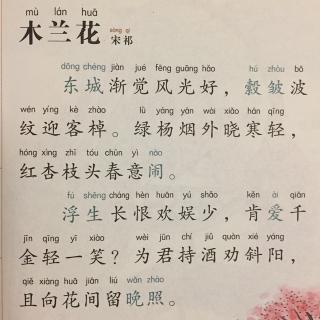 mù lán huā
木兰花 sòng qí
宋祁
dōng chéng jiàn jué fēng guāng hǎo hú zhòu bō
东城渐觉风光好，縠皱波
wén yíng kè zhào lǜ yáng yān wài xiǎo hán qīng
纹迎客棹。绿杨烟外晓寒轻，
hóng xìng zhī tóu chūn yì nào
红杏枝头春意闹。
fú shēng cháng hèn huān yú shǎo kěn ài qiān
浮生长恨欢娱少，肯爱千
jīn qīng yī xiào wèi jūn chí jiǔ quàn xié yáng
金轻一笑？为君持酒劝斜阳，
qiě xiàng huā jiān liú wǎn zhào
且向花间留晚照。